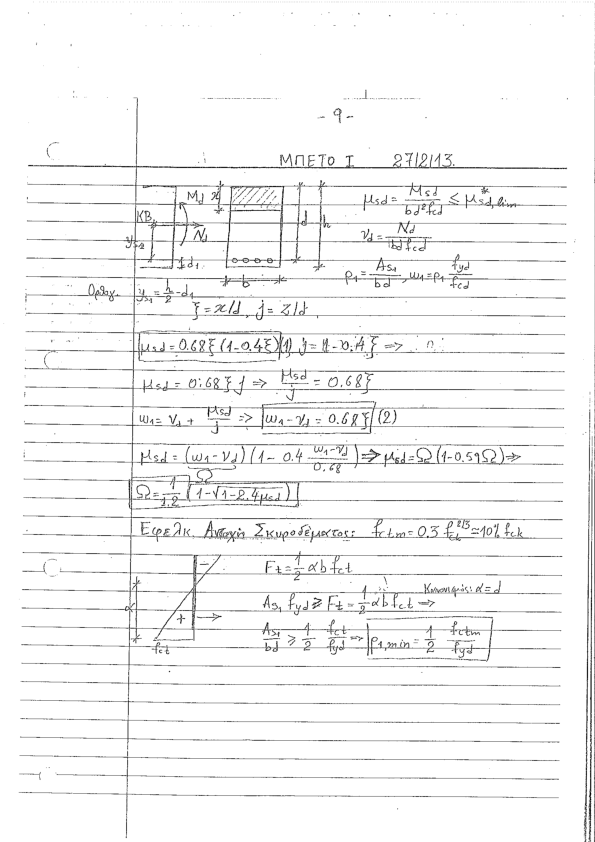 - 9 -
ΜΠΕΤΟ Ι 27/2/13.
Md x
μsd = Msd / bd²fcd ≤ μ*sd,lim
ΚΒ d h
Nd
νd = Nd / bdfcd
ys2
d1 b
ρ1 = As1 / bd, ω1 = ρ1 fyd / fcd
Ορθογ. ys1 = h/2 - d1
ξ = x/d, j = z/d,
μsd = 0.68ξ(1-0.4ξ) (1) j = 1-0.4ξ =>
μsd = 0.68ξj => μsd / j = 0.68ξ
ω1 = νd + μsd / j => ω1-νd = 0.68ξ (2)
μsd = (ω1-νd)(1-0.4 (ω1-νd) / 0.68) => μsd = Ω(1-0.59Ω) =>
Ω
Ω = 1/1.2 (1-√1-2.4μsd)
Εφελκ. Αντοχή Σκυροδέματος: fctm = 0.3 fck^2/3 ≈ 10% fck
- Ft = 1/2 αb fct
Κανονισμός: α = d
α As1 fyd ≥ Ft = 1/2 αb fct =>
+
fct As1 / bd ≥ 1/2 fct / fyd => ρ1,min = 1/2 fctm / fyd